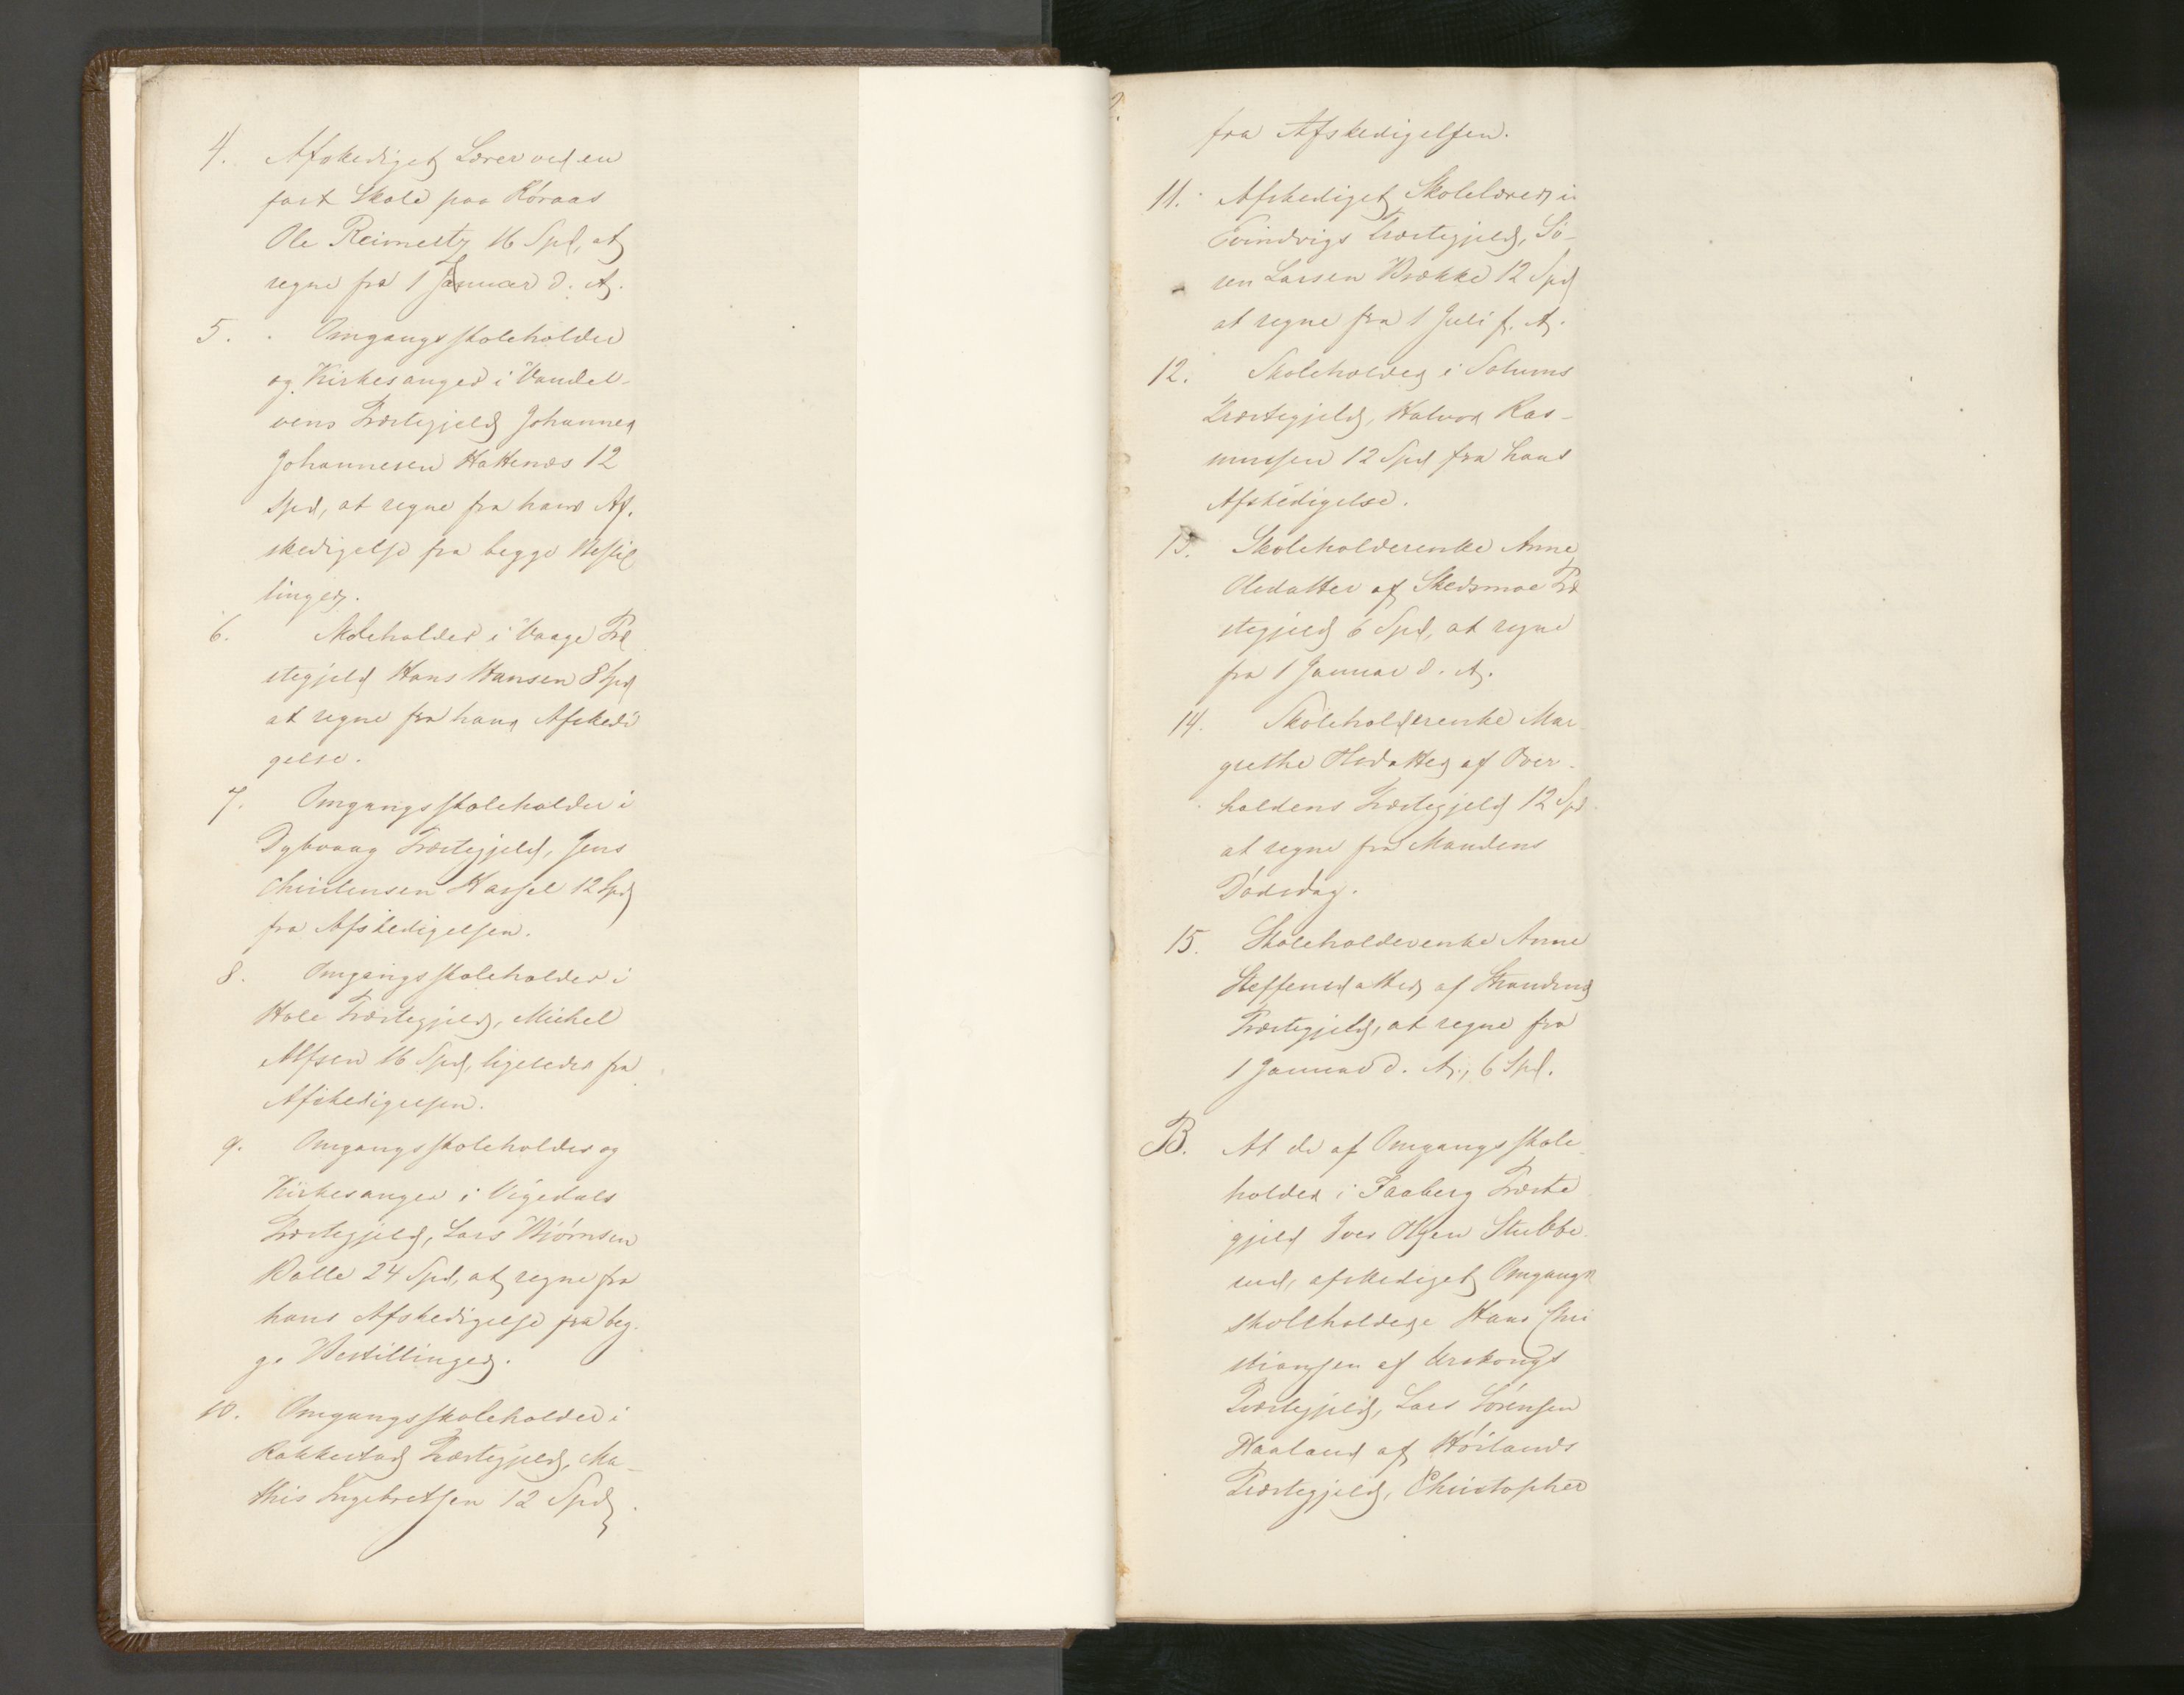 4. Afskediget Lærer ved en
fast Skole paa Röraas
Ole Reimertz 16 Spd, at
regne fra 1 Januar d. A.
5. Omgangsskoleholder
og Kirkesanger i Vandel-
vens Præstegjeld Johannes
Johannesen Hattenæs 12
Spd, at regne fra hans Af-
skedigelse fra begge Bestil
linger.
6. Skoleholder i Vaage Præ
stegjeld Hans Hansen 8 Spd
at regne fra hans Afskedi
gelse.
7. Omgangsskoleholder i
Dybvaag Præstegjeld, Jens
Christensen Hassel 12 Spd
fra Afskedigelsen.
8. Omgangsskoleholder i
Hole Præstegjeld, Mickel
Alfsen 16 Spd, ligeledes fra
Afskedigelsen.
9. Omgangsskoleholder og
Kirkesanger i Vigedals
Præstegjeld, Lars Björnsen
Walle 24 Spd, at regne fra
hans Afskedigelse fra beg-
ge Bestillinger.
10. Omgangsskoleholder i
Rakkestad Præstegjeld, Ma-
this Ingebretsen 12 Spd
fra Afskedigelsen.
11. Afskediget Skolelærer i
Evindvigs Præstegjeld, Sö-
ren Larsen Brække 12 Spd
at regne fra 1 Juli f. A.
12. Skoleholder i Solums
Præstegjeld, Halvor Ras-
mussen 12 Spd fra hans
Afskedigelse.
13. Skoleholderenke Anne
Olsdatter af Skedsmoe Præ
stegjeld 6 Spd, at regne
fra 1 Januar d. A.
14. Skoleholderenke Mar
grethe Olsdatter af Over-
haldens Præstegjeld 12 Spd
at regne fra Mandens
Dödsdag.
15. Skoleholderenke Anne
Steffensdatter af Strandens
Præstegjeld, at regne fra
1 Januar d. A., 6 Spd.
B. At de af Omgangsskole
holder i Faaberg Præste
gjeld Iver Olsen Stubbe
rud, afskediget Omgangs
skoleholder Hans Chri
stiansen af Urskougs
Præstegjeld, Lars Sörensen
Haaland af Höilands
Præstegjeld, Christopher